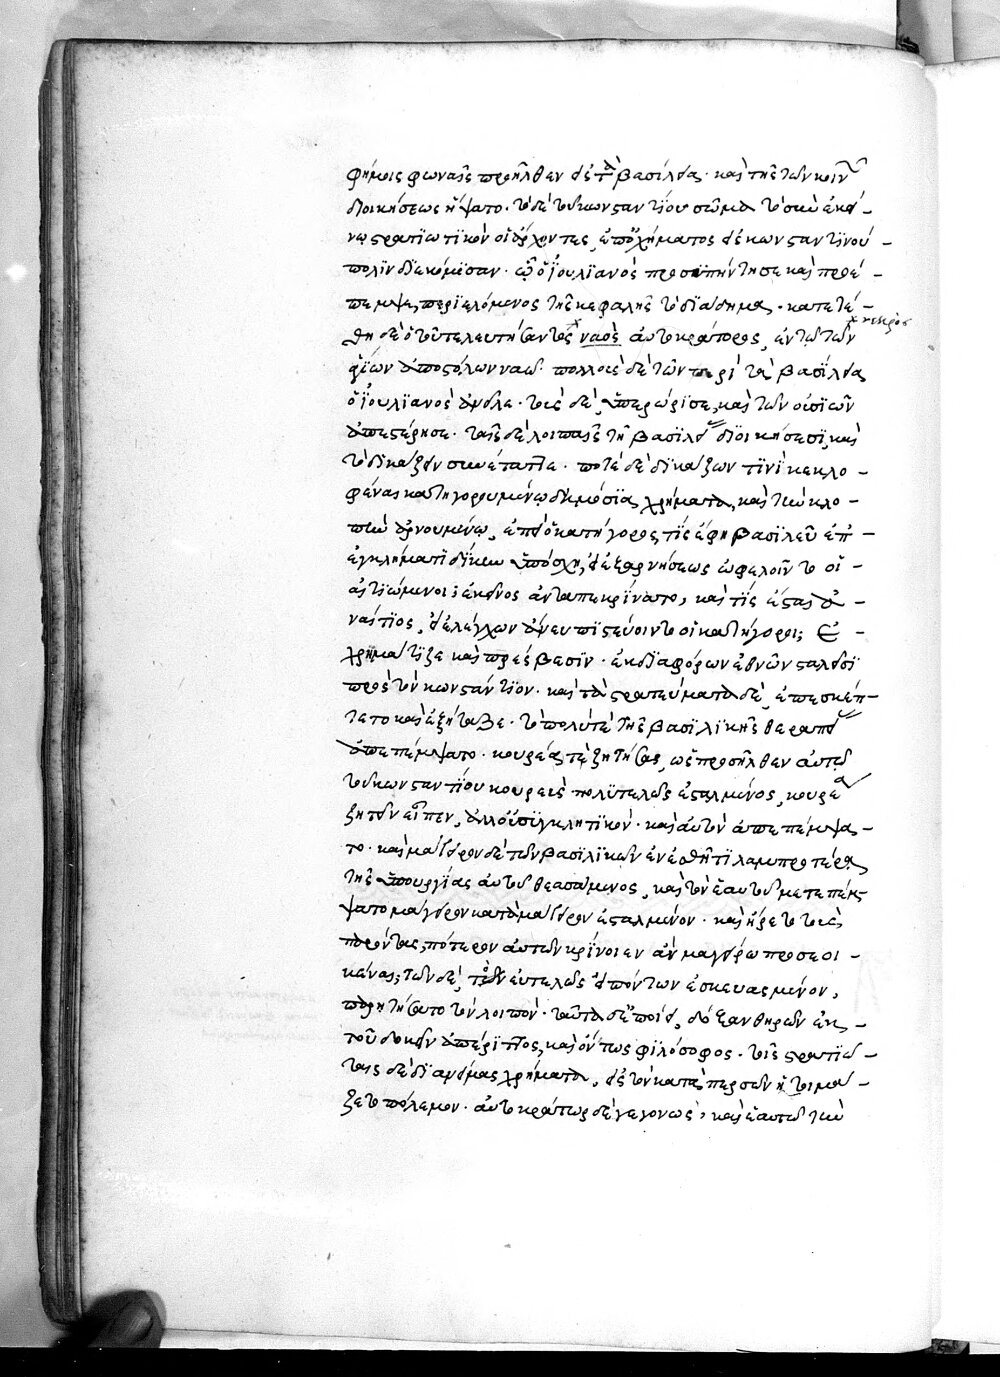 φήμοις φωναῖς προῆλθεν εἰς τὰ βασίλεια· καὶ τῆς τῶν κοινῶν
διοικήσεως ἥψατο· τὸ δὲ τοῦ κωνσταντίου σῶμα τὸ σὺν ἐκεί-
νω στρατιωτικὸν οἱ ἄρχοντες, ἐπ' ὀχήματος εἰς κωνσταντίνου
πόλιν διεκόμισαν· ᾧ ὁ ἰουλιανὸς προσϋπήντησε καὶ προέ-
πεμψε, περιελόμενος τῆς κεφαλῆς τὸ διάδημα· κατετέ-
θη δὲ ὁ τοῦ τελευτήσαντος ναὸς αὐτοκράτορος, ἐν τῷ τῶν
νεκρὸς
ἁγίων ἀποστόλων ναῷ· πολλοὺς δὲ τῶν περὶ τὰ βασίλεια
ὁ ἰουλιανὸς ἀνεῖλε· τοὺς δὲ, ὑπερώρισε, καὶ τῶν οὐσιῶν
ἀπεστέρησε· ταῖς δὲ λοιπαῖς τῆς βασιλείας διοικήσεσι, καὶ
τὸ δικάζειν συνέταττε· ποτὲ δὲ δικάζων τινὶ κεκλο-
φέναι κατηγορουμένῳ δημόσια χρήματα, καὶ τὴν κλο-
πὴν ἀρνουμένῳ, ἐπεὶ ὁ κατήγορος τίς ἔφη βασιλεῦ ἐπ'
ἐγκλήματι δίκην ὑπόσχῃ, εἰ ἐξ ἀρνήσεως ὠφελοῖντο οἱ
αἰτιώμενοι; ἐκεῖνος ἀνταπεκρίνατο, καὶ τίς ἔσται ἀ-
ναίτιος, εἰ ἐλέγχων ἄνευ πιστεύοιντο οἱ κατήγοροι; Ἐ-
χρημάτιζε καὶ πρέσβεσιν· ἐκ διαφόρων ἐθνῶν σταλεῖσι
πρὸς τὸν κωνστάντιον· καὶ τὰ στρατεύματα δὲ, ἐπεσκέπ-
τετο καὶ ἐξήταζε· τὸ πολὺ τὲ τῆς βασιλικῆς θεραπείας
ἀπεπέμψατο· κουρέα τὲ ζητήσας, ὡς προσῆλθεν αὐτῷ
τοῦ κωνσταντίου κουρεὺς πολυτελῶς ἐσταλμένος, κουρέα
ζητεῖν εἶπεν, ἀλλ' οὐ συγκλητικόν· καὶ αὐτὸν ἀπεπέμψα-
το· καὶ μάγειρον δὲ τῶν βασιλικῶν ἐν ἐσθῆτι λαμπροτέρᾳ
τῆς ὑπουργίας αὐτοῦ θεασάμενος, καὶ τὸν ἑαυτοῦ μετεπέμ-
ψατο μάγειρον κατὰ μάγειρον ἐσταλμένον· καὶ ἤρετο τοὺς
παρόντας, πότερον αὐτῶν κρίνοιεν ἂν μαγείρω προσεοι-
κέναι; τῶν δὲ, τὸν εὐτελῶς εἰπόντων ἐσκευασμένον,
παρῃτήσατο τὸν λοιπόν· ταῦτα δὲ ἐποίει, δόξαν θηρῶν ἐκ
τοῦ δοκεῖν ἀπέριττος, καὶ ὄντως φιλόσοφος· τοῖς στρατιώ-
ταις δὲ διανείμας χρήματα, εἰς τὸν κατὰ περσῶν ἡτοιμά-
ζετο πόλεμον· αὐτοκράτωρ δὲ γεγονὼς, καὶ ἑαυτῷ τὴν